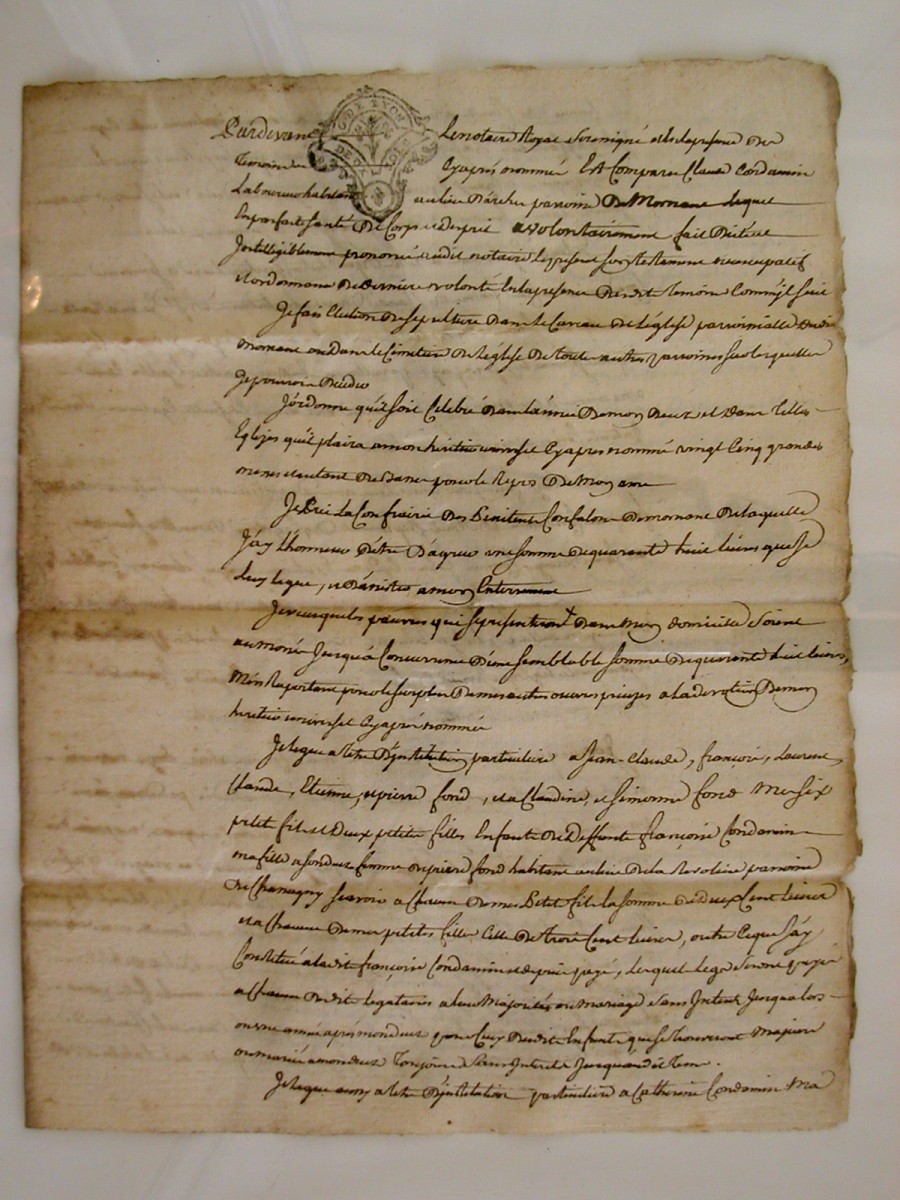 Pardevant Le notaire Royal soussigné et En la presence des
Temoins Cy apres nommés Est Comparu Claude Condamin
Laboureur habitant au lieu parroisse De Mornant Lequel
En parfaite santé De Corps et d'esprit a volontairement fait Dicté et
Intelligiblement prononcé audit notaire Le present son testament nuncupatif
et ordonnance de derniere volonté En la presence Desdits temoins Comm'jl suit
Je fais Election De sepulture Dans le Caveau De l'eglise parroissialle Dudit
mornant ou Dans le Cimetiere De l'eglise De toute autres parroisses sur lesquelles
Je pourrois Deceder
J'ordonne qu'il soit Celebré Dans l'année De mon Deces et Dans telles
Eglises qu'il plaira a mon heritier universel Cy apres nommé vingt Cinq grandes
messes et autant De basses pour le Repos De Mon ame
Je Prie La Confrairie Des Penitents Confalons De mornant De laquelle
J'ay L'honneur D'etre D'agreer une somme de quarante huit livres que je
Luy legue, et D'assister a mon Enterrement
Je veux que les pauvres qui se presenteront Dans Mon domicile soient
aumonés Jusqu'a Concurrence D'une semblable somme De quarante huit livres,
M'en Raportant pour le surplus De mes autres oeuvres pieuses a la devotion De mon
heritier universel Cy apres nommé
Je legue a titre D'jnstitution particuliere a Jean-Claude, françois, Laurent,
Claude, Etienne, et pierre fond, et a Claudine, et simonne fond Mes six
petit fils et Deux petites filles Enfants De Deffunte françoise Condamin
ma fille a son deces femme De pierre fond habitant au lieu De la parroisse
De Chassagny scavoir a Chacun De mes Petit fils la somme De deux Cent livres
et a Chacune De mes petites filles Celle De trois Cent livres, outre Ce que J'ay
Constitué a ladite françoise Condamin et depuis payé, Lesquels legs seront payés
a Chacun Desdits legataires a leur Majorité ou Mariage sans Interet Jusqu'alors
ou une année apres mon deces pour Ceux Desdits Enfants qui se trouveront Majeurs
ou mariés a mon deces toujours sans Interets Jusqu'audit tems.
Je legue aussy a titre D'jnstitution particuliere a Catherine Condamin Ma